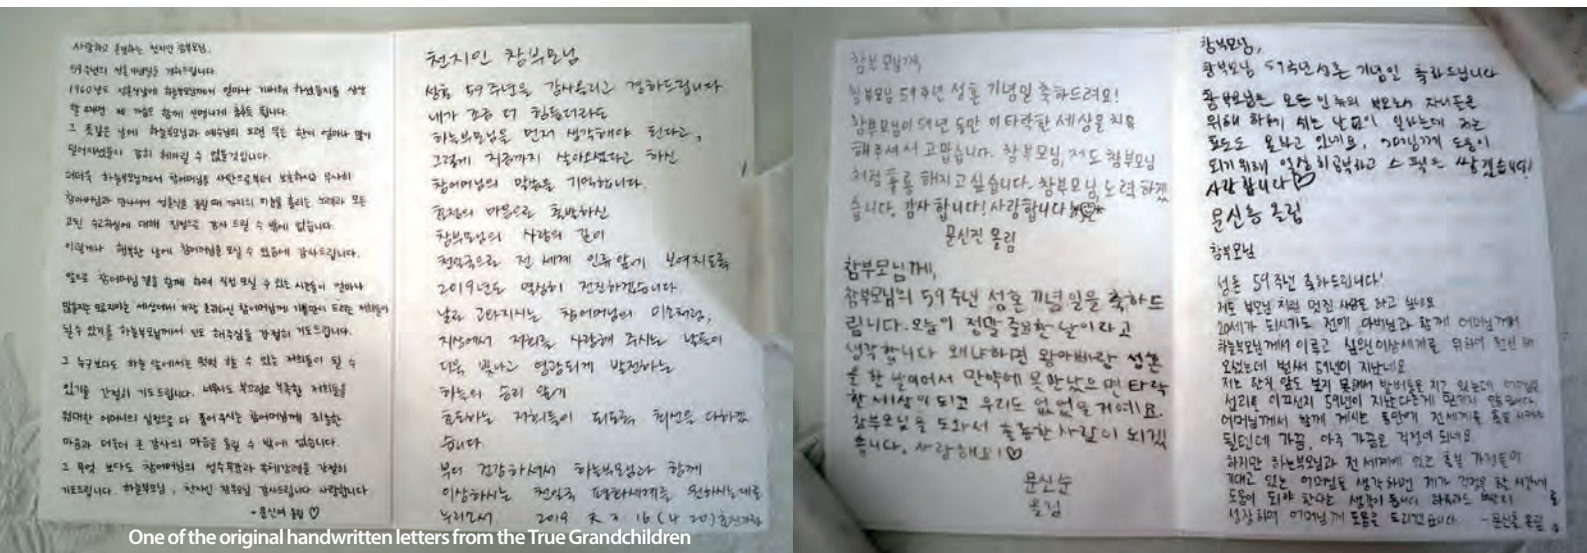 사랑하고 존경하는 천지인 참부모님,
59주년의 성혼기념일을 경하드립니다.
1960년도 성혼식날에 하늘부모님께서 얼마나 기뻐해 하셨을지를 상상
할 때면 제 가슴도 함께 신명나게 춤추듯 합니다.
그 뜻깊은 날에 하늘부모님과 예수님의 오랜 묵은 한이 얼마나 많이
감히 헤아릴 수 없을것입니다.
더더욱 하늘부모님께서 참어머님을 사탄으로부터 보호하시고 무사히
참아버님과 만나셔서 성혼식을 올릴 때 까지의 피눈물 흘리는 노력과 모든
고된 수고하심에 대해 진심으로 감사 드릴 수 밖에 없습니다.
이렇게나 행복한 날에 참어머님을 모실 수 있음에 감사드립니다.
앞으로 참어머님 곁을 함께 하며 직접 모실 수 있는 시간들이 얼마나
많을지는 모르지만 세상에서 가장 존귀하신 참어머님께 기쁨만이 드리는 저희들이
될 수 있기를 하늘부모님께서 인도 해주심을 간절히 기도드립니다.
그 누구보다도 하늘 앞에서는 떳떳 할 수 있는 저희들이 될 수
있기를 간절히 기도드립니다. 너무나도 부끄럽고 부족한 저희들을
위대한 어머니의 심정으로 다 품어주시는 참어머님께 죄송한
마음과 더불어 큰 감사의 마음을 올릴 수 밖에 없습니다.
그 무엇 보다도 참어머님의 성수무강과 옥체강령을 간절히
기도드립니다. 하늘부모님, 천지인 참부모님 감사드립니다 사랑합니다
올림 ♡
천지인 참부모님
성혼 59주년을 감사올리고 경하드립니다
내가 조금 더 힘들더라도
하늘부모님을 먼저 생각해야 된다고,
그렇게 지금까지 살아오셨다고 하신
참어머님의 말씀을 기억합니다.
효정의 마음으로 출발하신
참부모님의 사랑의 길이
천일국으로 전 세계 인류 앞에 보여지도록
2019년도 열심히 전진하겠습니다
날로 고와지시는 참어머님의 미소처럼,
지상에서 저희를 사랑해 주시는 날들이
더욱 빛나고 영광되게 발전하는
하늘의 승리 앞에
효도하는 저희들이 되도록 최선을 다하겠
습니다
부디 건강하셔서 하늘부모님과 함께
이상하시는 천일국 평화세계를 원하시는대로
누리소서. 2019 天 3. 16 (4. 20) 효진가정
참부모님께,
참부모님 59주년 성혼 기념일 축하드려요!
참부모님이 59년 동안 이 타락한 세상을 치유
해주셔서 고맙습니다. 참부모님, 저도 참부모님
처럼 훌륭해지고 싶습니다. 참부모님, 노력 하겠
습니다. 감사합니다! 사랑합니다
문신진 올림
참부모님께,
참부모님의 59주년 성혼 기념일을 축하드
립니다. 오늘이 정말 중요한 날이라고
생각합니다 왜냐하면 왕아빠랑 성혼
을 한 날이어서 만약에 못 만났으면 타락
한 세상이 되고 우리도 없었을 거예요.
참부모님을 도와서 훌륭한 사람이 되겠
습니다. 사랑해요! ♡
올림
참부모님,
참부모님 59주년 성혼 기념일 축하드립니다
참부모님은 모든 인류의 부모로서 자녀들을
위해 하루 쉬는 날 없이 일하는데 저는
효도도 못하고 있네요, 어머님께 도움이
되기 위해 열심히 공부하고 스펙을 쌓겠습니다!
사랑합니다 ♡
문신흥 올림
참부모님
성혼 59주년 축하드립니다!
저도 부모님 처럼 멋진 사람도 하고 싶네요
20세가 되시기도 전에 아버님과 함께 어머님께서
하늘부모님께서 이루고 싶었던 이상세계를 위하여
오셨는데 벌써 59년이 지났네요.
저는 한치 앞도 보지 못해서 있는데 어머님은
섭리를 이끄신지 59년이 지난다는게
어머님께서 함께 계시는 동안에 전세계를
될텐데 가끔, 아주 가끔은 걱정이 되네요.
하지만 하늘부모님과 전 세계에 있는 축복 가정들이
기대고 있는 어머님을 생각하면 제가 걱정을 할 시간에
도움이 되야 한다는 생각이
성장하여 어머님께 도움을 드리겠습니다.
One of the original handwritten letters from the True Grandchildren